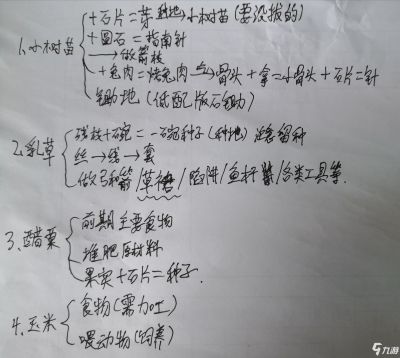 +石片=芽 种地→小树苗(要没拔的)
+圆石=指南针
1.小树苗 →做箭枝
+兔肉=烤兔肉→骨头+拿=小骨头+石片=针
锄地(低配版石锄)
残枝+石碗=一碗种子(种地)注意留种
2.乳草 丝→线→套
做弓和箭/草裙/陷阱/鱼杆/各类工具等.
前期主要食物
3.醋栗 堆肥原材料
果实+石片=种子.
4.玉米 食物(需加工)
喂动物(饲养)
九游